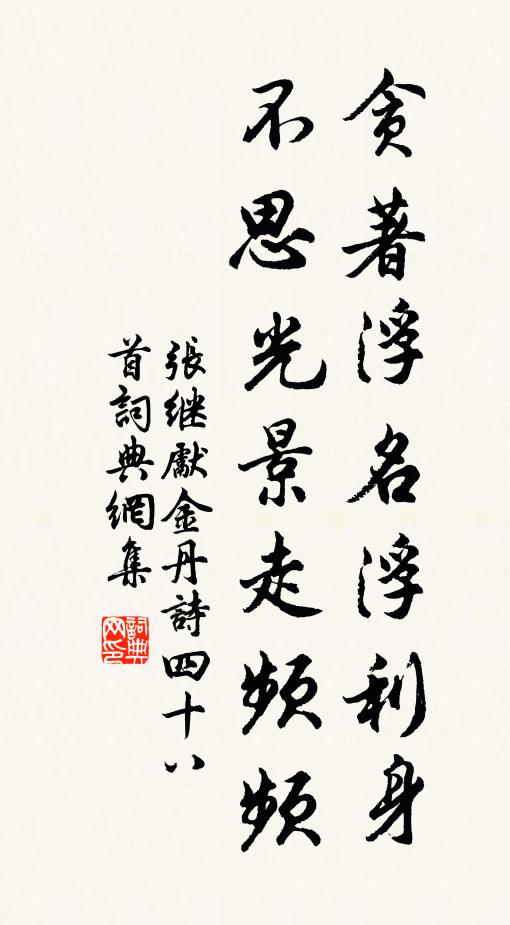 貪著浮名浮利身
不思光景走頻頻
張继獻金丹詩四十八
首詞典網集
詞典网印